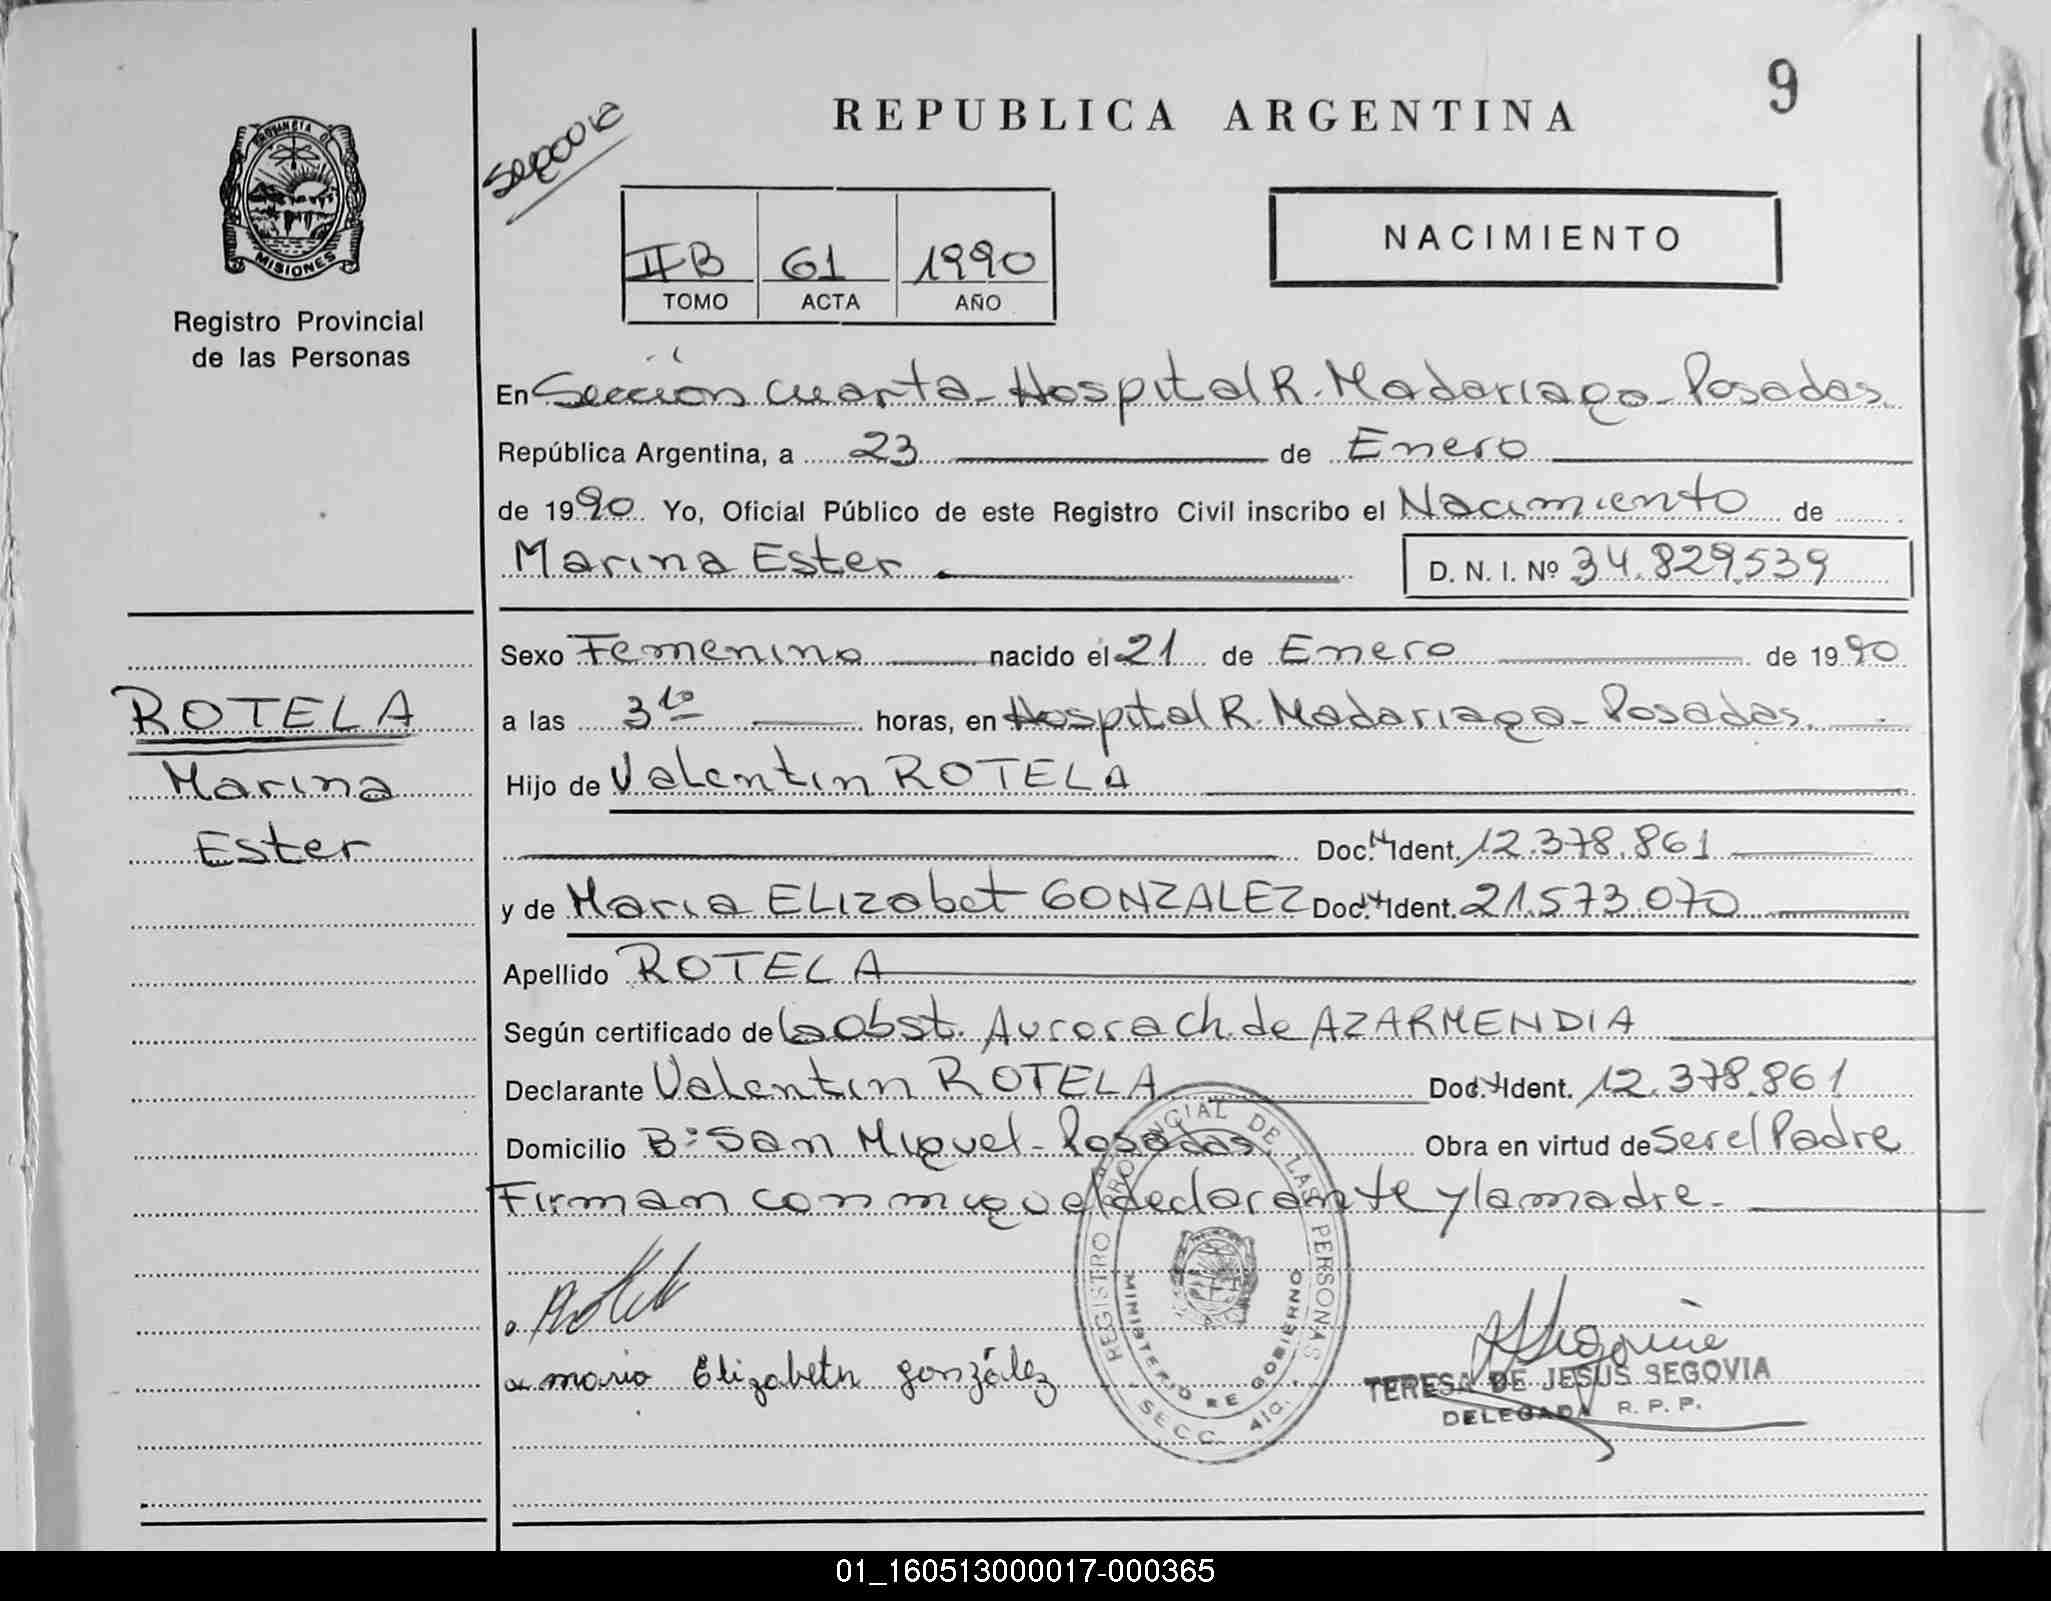 9
REPUBLICA ARGENTINA
PROVINCIA DE
MISIONES
Registro Provincial
de las Personas
NACIMIENTO
IIB 61 1990
TOMO ACTA AÑO
En Sección cuarta - Hospital R. Madariaga - Posadas.
República Argentina, a 23 de Enero
de 1990. Yo, Oficial Público de este Registro Civil inscribo el Nacimiento de
Marina Ester D. N. I. Nº 34.829.539
Sexo Femenino nacido el 21 de Enero de 1990
a las 3 10 horas, en Hospital R. Madariaga - Posadas.
Hijo de Valentin ROTELA
Doc. N Ident. 12.378.861
y de Maria ELizabet GONZALEZ Doc. N Ident. 21.573.070
Apellido ROTELA
Según certificado de la obst. Aurora ch. de AZARMENDIA
Declarante Valentin ROTELA Doc. N Ident. 12.378.861
Domicilio Bº San Miguel - Posadas. Obra en virtud de ser el Padre
Firman conmigo el declarante y la madre.
ROTELA
Marina
Ester
Rotela
maria Elizabeth gonzález
REGISTRO PROVINCIAL DE LAS PERSONAS
MINISTERIO DE GOBIERNO
SECC. 4ta.
Segovia
TERESA DE JESUS SEGOVIA
DELEGADA R. P. P.
01_160513000017-000365